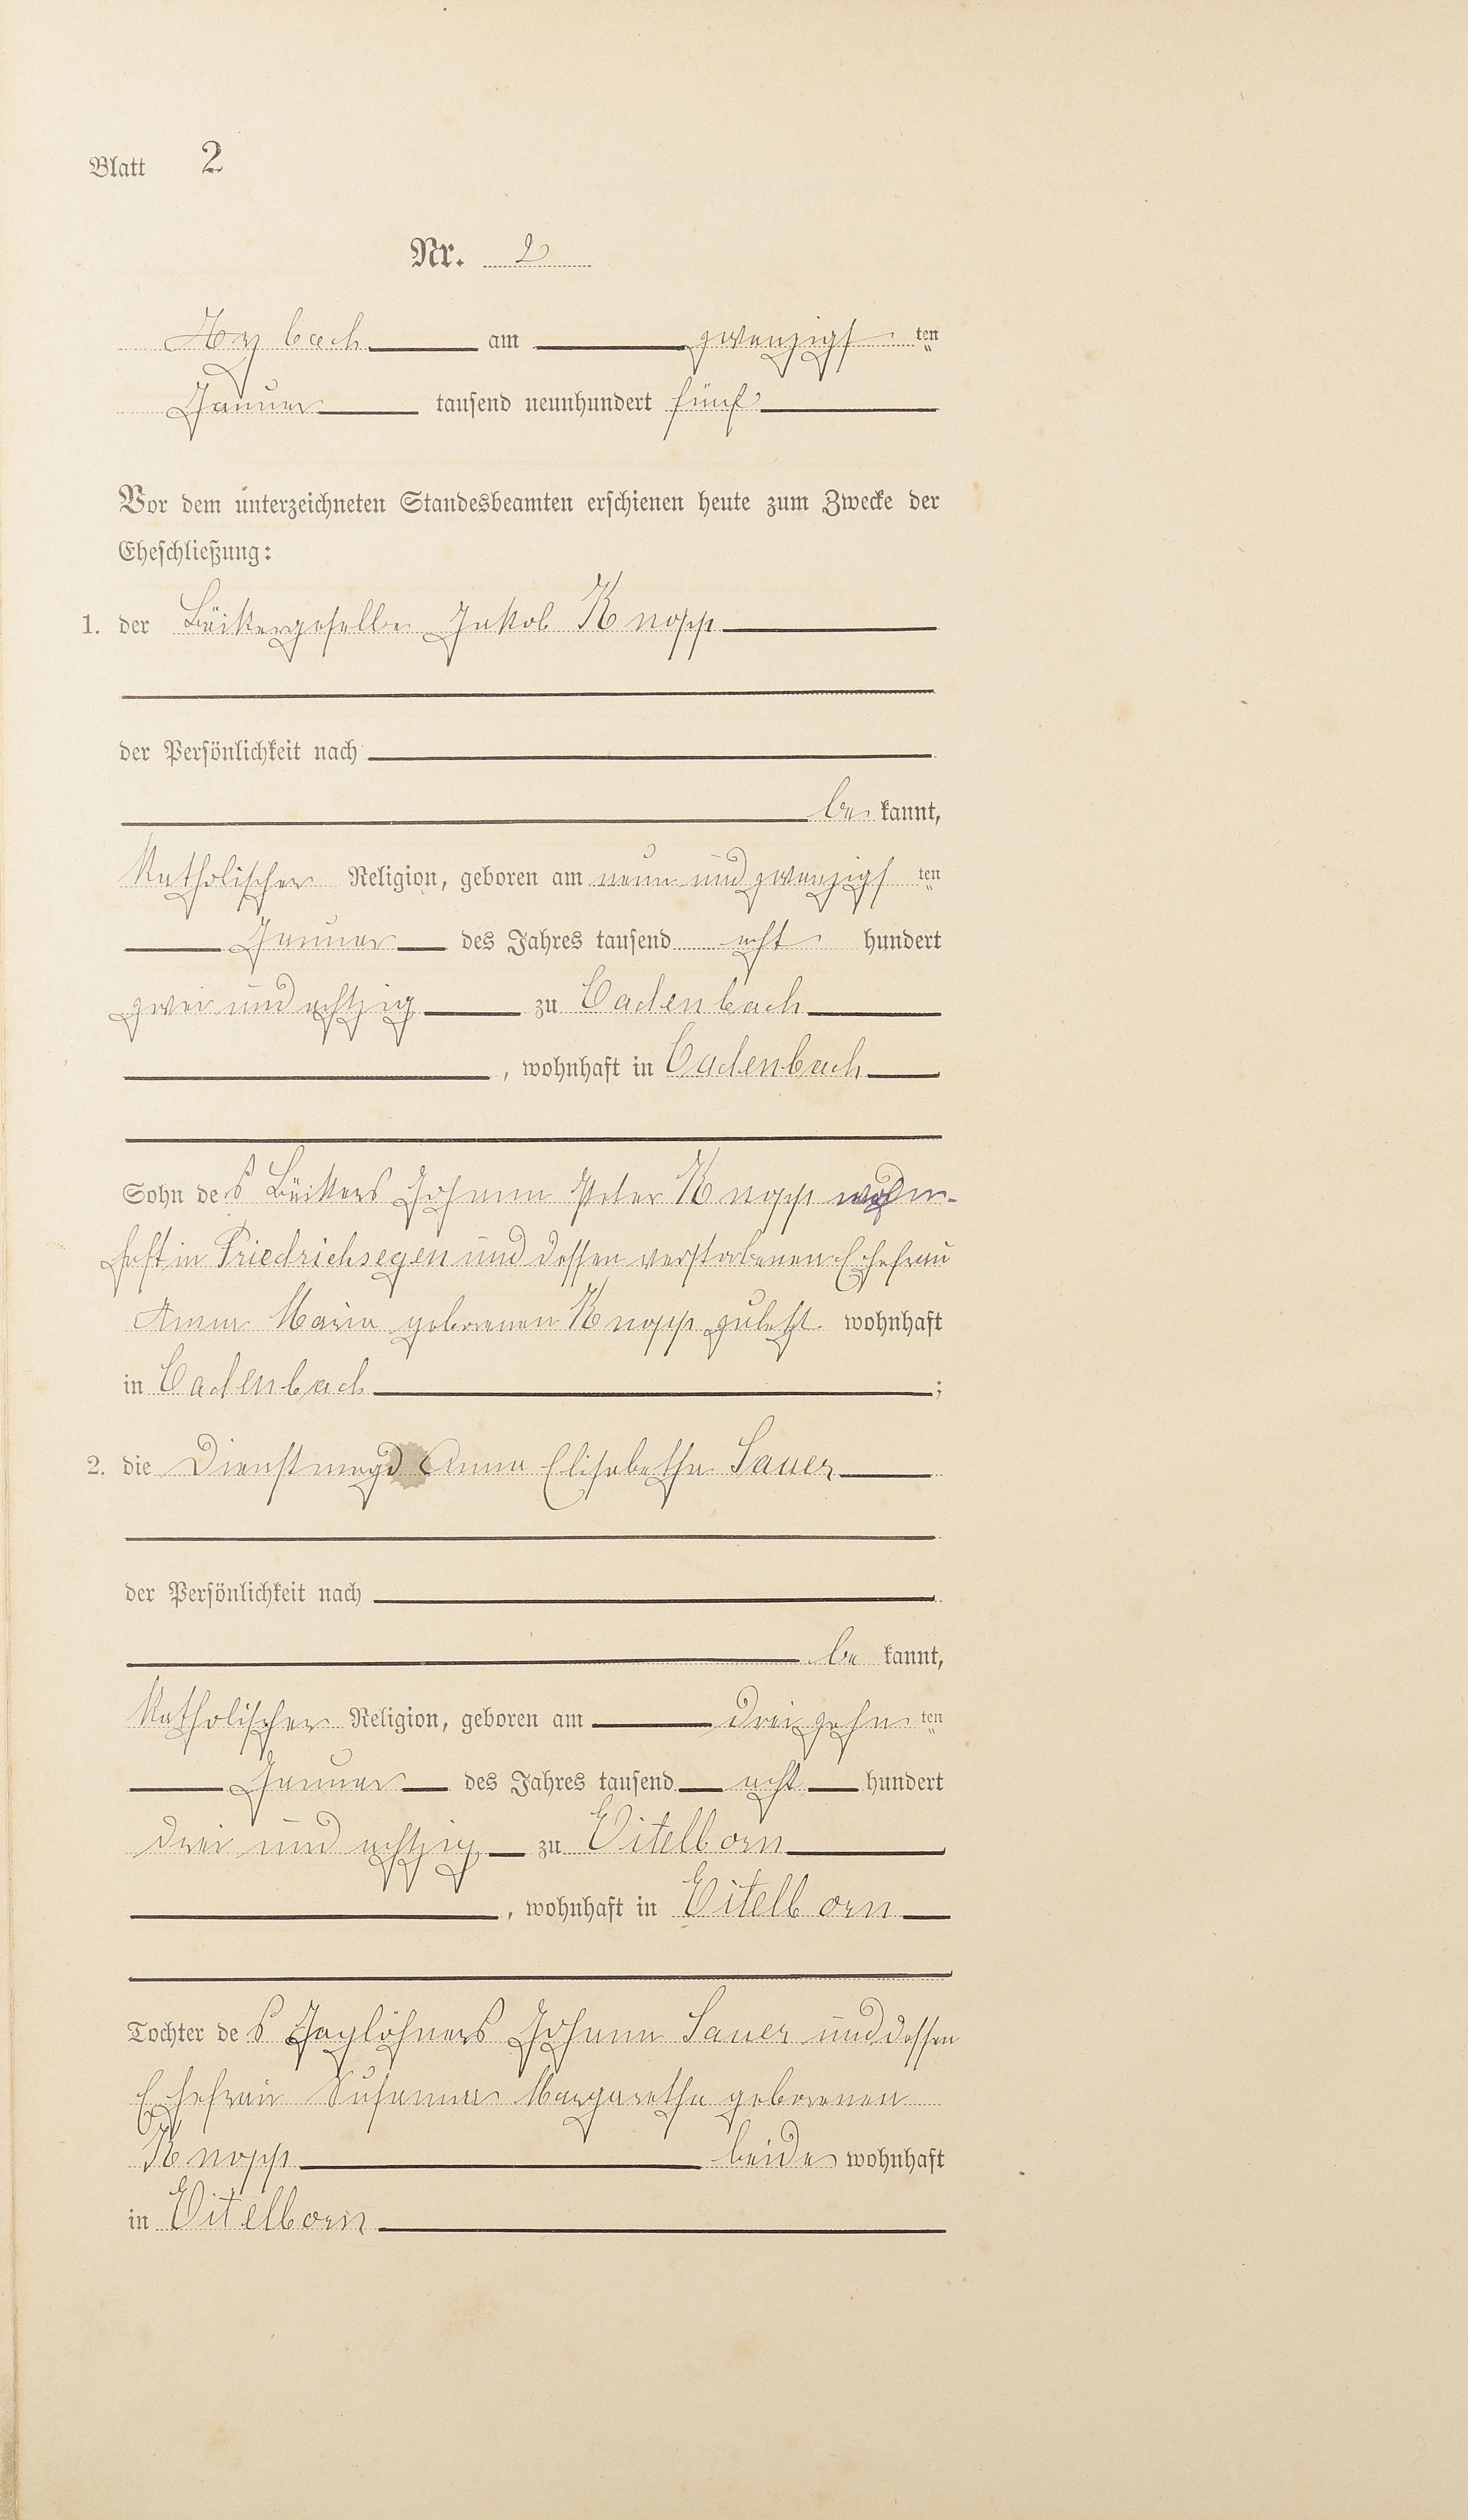 Blatt 2
Nr. 2
Arzbach am zwanzigsten
Januar tausend neunhundert fünf
Vor dem unterzeichneten Standesbeamten erschienen heute zum Zwecke der
Eheschließung:
1. der Bäckergeselle Jakob Knopp
der Persönlichkeit nach
be kannt,
Katholischer Religion, geboren am neun und zwanzigsten
Januar des Jahres tausend acht hundert
zwei und achtzig zu Cadenbach
, wohnhaft in Cadenbach
Sohn des Bäckers Johann Peter Knopp wohn-
haft in Friedrichsegen und dessen verstorbenen Ehefrau
Anna Maria geborenen Knopp zuletzt wohnhaft
in Cadenbach ;
2. die Dienstmagd Anna Elisabetha Sauer
der Persönlichkeit nach
be kannt,
Katholischer Religion, geboren am dreizehnten
Januar des Jahres tausend acht hundert
drei und achtzig zu Eitelborn
, wohnhaft in Eitelborn
Tochter des Taglöhners Johann Sauer und dessen
Ehefrau Susanna Margaretha geborenen
Knopp beide wohnhaft
in Eitelborn